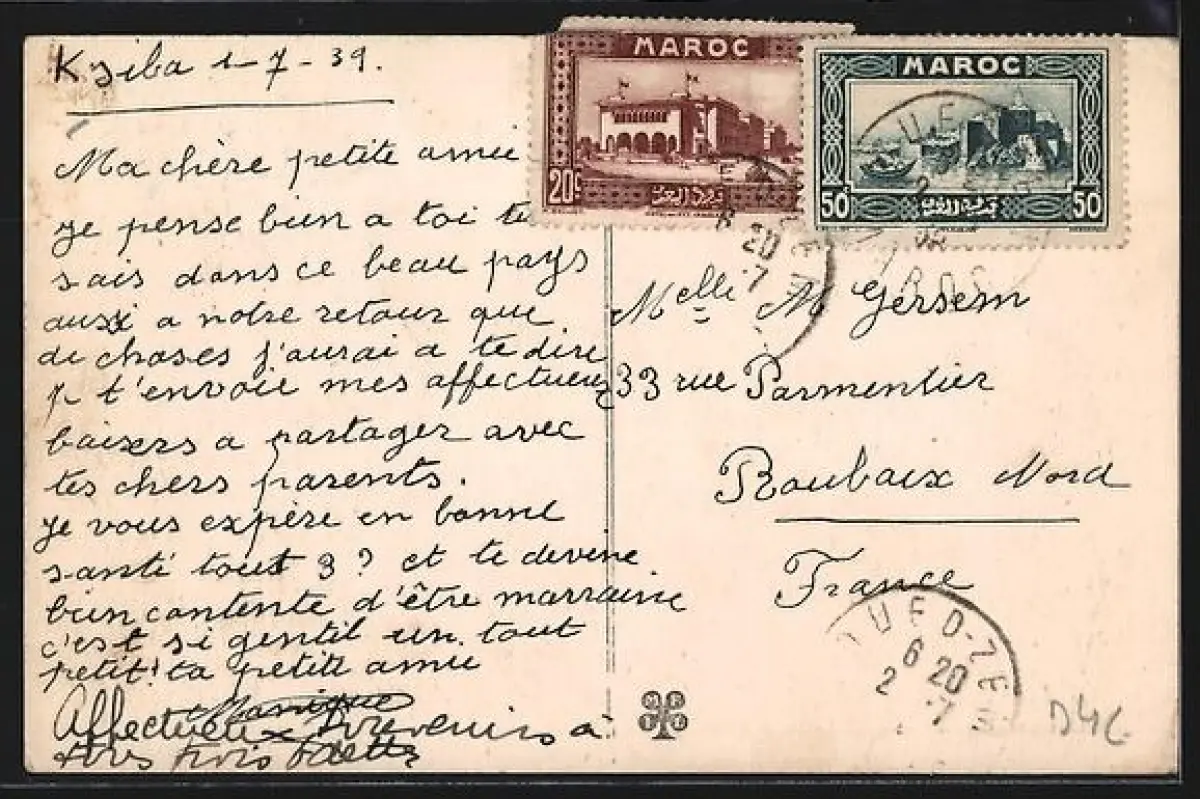 Ksiba 1-7-39.
Ma chère petite amie
je pense bien a toi tu
sais dans ce beau pays
aussi a notre retour que
de choses j'aurai a te dire
je t'envoie mes affectueux
baisers a partager avec
tes chers parents.
Je vous expère en bonne
santé tous 3? et te devine
bien contente d'être marraine
c'est si gentil un tout
petit! ta petite amie
Monique
Affectueux souvenirs à
tous trois
MAROC
20c
MAROC
50c
50c
Melle M Gersem
33 rue Parmentier
Roubaix Nord
France
OUED-ZEM
6 20
2 .7
D46